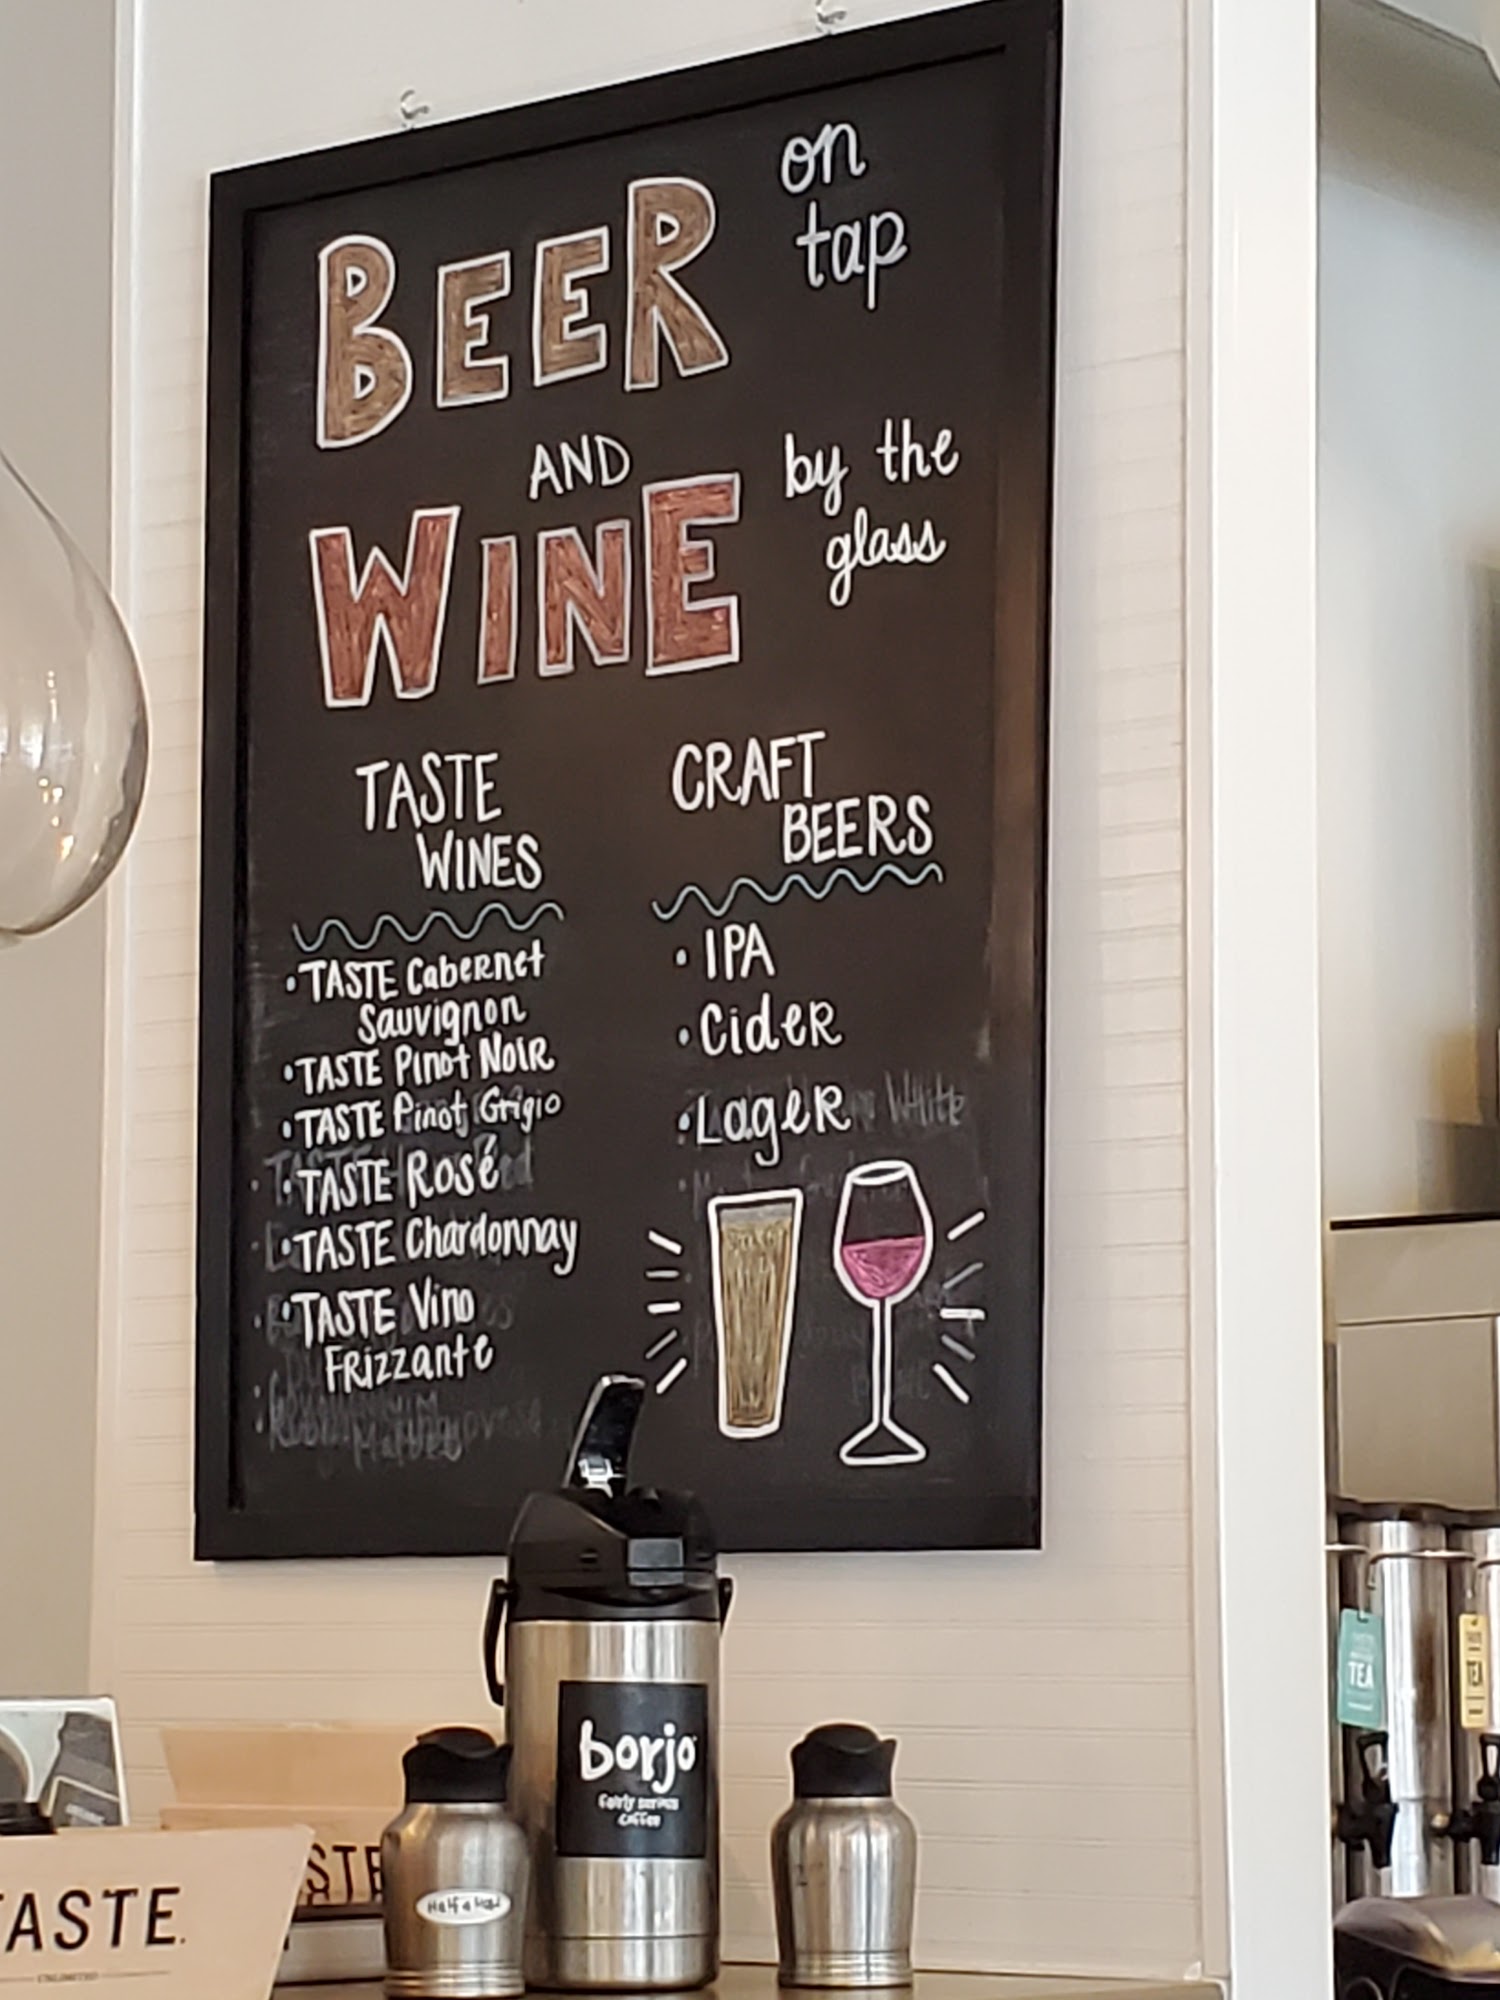 BEER on
tap
AND
WINE by the
glass
TASTE
WINES
• TASTE Cabernet
Sauvignon
• TASTE Pinot Noir
• TASTE Pinot Grigio
• TASTE Rosé
• TASTE Chardonnay
• TASTE Vino
Frizzante
CRAFT
BEERS
• IPA
• Cider
• Lager
White
borjo
fairly serious
coffee
Half & Half
TASTE.
UNLIMITED
STE
TEA
TEA